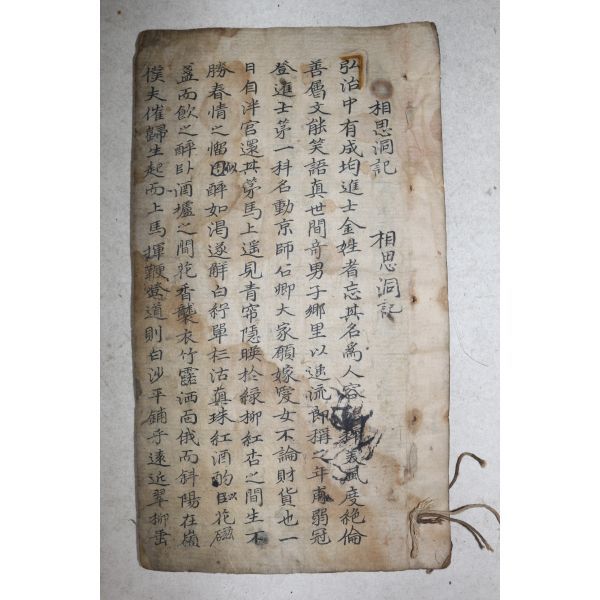 相思洞記 相思洞記
弘治中有成均進士金姓者忘其名為人容美風度絕倫
善屬文能笑語真世間奇男子鄉里以速流郎稱之年甫弱冠
登進士第一科名動京師公卿大家願嫁愛女不論財貨也一
日自泮宮還其第馬上遙見青帘隱映於綠柳紅杏之間生不
勝春情之惱似醉如渴遂解白紵單衫沽真珠紅酒酌以花磁
盞而飲之醉臥酒壚之間花香襲衣竹露洒面俄而斜陽在嶺
僕夫催歸生起而上馬揮鞭登道則白沙平鋪乎遠近翠柳垂